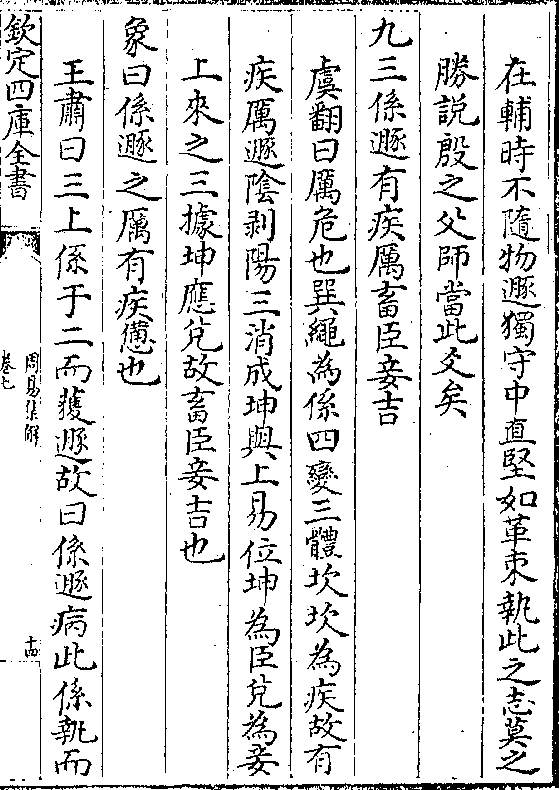 在輔時不隨物遯獨守中直堅如革束執此之志莫之
勝説殷之父師當此爻矣
九三係遯有疾厲畜臣妾吉
虞翻曰厲危也巽繩為係四變三體坎坎為疾故有
疾厲遯陰剥陽三消成坤與上易位坤為臣兌為妾
上來之三據坤應兌故畜臣妾吉也
象曰係遯之厲有疾憊也
王肅曰三上係于二而獲遯故曰係遯病此係執而
欽定四庫全書
周易集解
卷七
十四